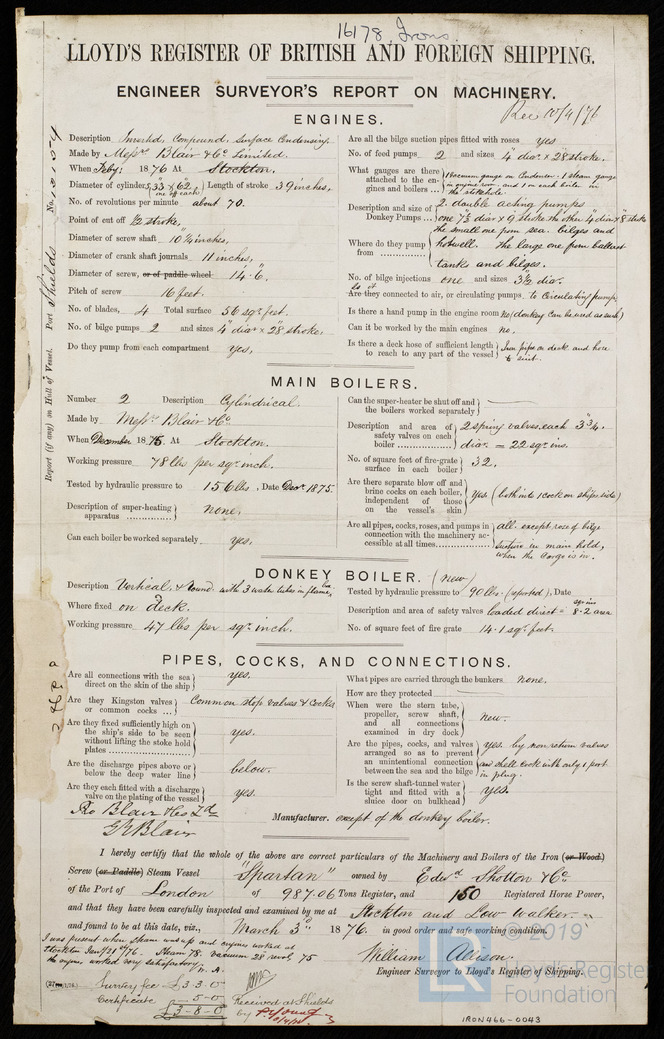 16178 Irons
LLOYD'S REGISTER OF BRITISH AND FOREIGN SHIPPING.
ENGINEER SURVEYOR'S REPORT ON MACHINERY.
Rec 10/4/76
ENGINES.
Description Inverted, Compound, Surface Condensing.
Made by Messrs Blair & Co Limited.
When Feby: 1876 At Stockton.
Diameter of cylinders 33" & 62" one off each Length of stroke 39 inches,
No. of revolutions per minute about 70.
Point of cut off 1/2 stroke,
Diameter of screw shaft 10 3/4 inches,
Diameter of crank shaft journals 11 inches,
Diameter of screw, or of paddle wheel 14.6,
Pitch of screw 16 feet.
No. of blades, 4 Total surface 56 sqr feet.
No. of bilge pumps 2 and sizes 4" diar x 28" stroke,
Do they pump from each compartment yes,
Are all the bilge suction pipes fitted with roses yes
No. of feed pumps 2 and sizes 4" diar. x 28" stroke.
What gauges are there attached to the engines and boilers ... 1 Vacuum gauge on Condenser. 1 steam gauge in engine room. and 1 on each boiler in the stokehole.
Description and size of Donkey Pumps ... 2 double acting pumps one 7 1/2 diar x 9 stroke the other 4 diar x 8" stroke
Where do they pump from ............ the small one from sea. bilges and hotwell. The large one from ballast tanks and bilges.
No. of bilge injections one and sizes 3 1/2 dia.
Is it
Are they connected to air, or circulating pumps, to Circulating pump
Is there a hand pump in the engine room No (donkey can be used as such)
Can it be worked by the main engines no,
Is there a deck hose of sufficient length to reach to any part of the vessel Iron pipe on deck. and hose to suit.
MAIN BOILERS.
Number 2 Description Cylindrical.
Made by Messrs Blair & Co
When December 1875. At Stockton.
Working pressure 78 lbs per sqr inch.
Tested by hydraulic pressure to 156 lbs, Date Decr 1875.
Description of super-heating apparatus .............. none,
Can each boiler be worked separately yes,
Can the super-heater be shut off and the boilers worked separately
Description and area of safety valves on each boiler ................. 2 spring valves, each 3 3/4, diar. = 22 sqr ins.
No. of square feet of fire-grate surface in each boiler 32.
Are there separate blow off and brine cocks on each boiler, independent of those on the vessel's skin yes (both into 1 cock on ships side)
Are all pipes, cocks, roses, and pumps in connection with the machinery accessible at all times............... all. except rose of bilge suction in main hold, when the Cargo is in.
DONKEY BOILER. (new)
Description Vertical, & round with 3 water tubes in flame,
Where fixed on deck.
Working pressure 47 lbs per sqr inch.
Tested by hydraulic pressure to 90 lbs. (reported), Date
Description and area of safety valves loaded direct = 8.2 sqr ins area
No. of square feet of fire grate 14.1 sqr feet.
PIPES, COCKS, AND CONNECTIONS.
Are all connections with the sea direct on the skin of the ship yes.
Are they Kingston valves or common cocks ... Common stop valves & Cocks
Are they fixed sufficiently high on the ship's side to be seen without lifting the stoke hold plates ..................... yes.
Are the discharge pipes above or below the deep water line below.
Are they each fitted with a discharge valve on the plating of the vessel yes.
What pipes are carried through the bunkers none.
How are they protected
When were the stern tube, propeller, screw shaft, and all connections examined in dry dock new.
Are the pipes, cocks, and valves arranged so as to prevent an unintentional connection between the sea and the bilge yes. by non return valves and shell cock with only 1 port in plug.
Is the screw shaft-tunnel water tight and fitted with a sluice door on bulkhead yes.
Pro Blair & Co Ld
G Y Blair
Manufacturer. except of the donkey boiler.
I hereby certify that the whole of the above are correct particulars of the Machinery and Boilers of the Iron (or Wood)
Screw (or Paddle) Steam Vessel "Spartan" owned by Edwd Shotton & Co
of the Port of London of 987.06 Tons Register, and 150 Registered Horse Power,
and that they have been carefully inspected and examined by me at Stockton and Low Walker.
and found to be at this date, viz., March 3rd 1876. in good order and safe working condition.
I was present when steam was up and engines worked at
Stockton Jany 21st 76. Steam 78. Vacuum 28 revol. 75
the engines worked very satisfactory. W. A.
William Allison.
Engineer Surveyor to Lloyd's Register of Shipping.
Survey fee £3.3.0
Certificate - 5-0
£3-8-0
Received at Shields
by P. Young
Report (if any) on Hull of Vessel. Port Shields No.
© 2019
LR Lloyd's Register
Foundation
IRON466-0043